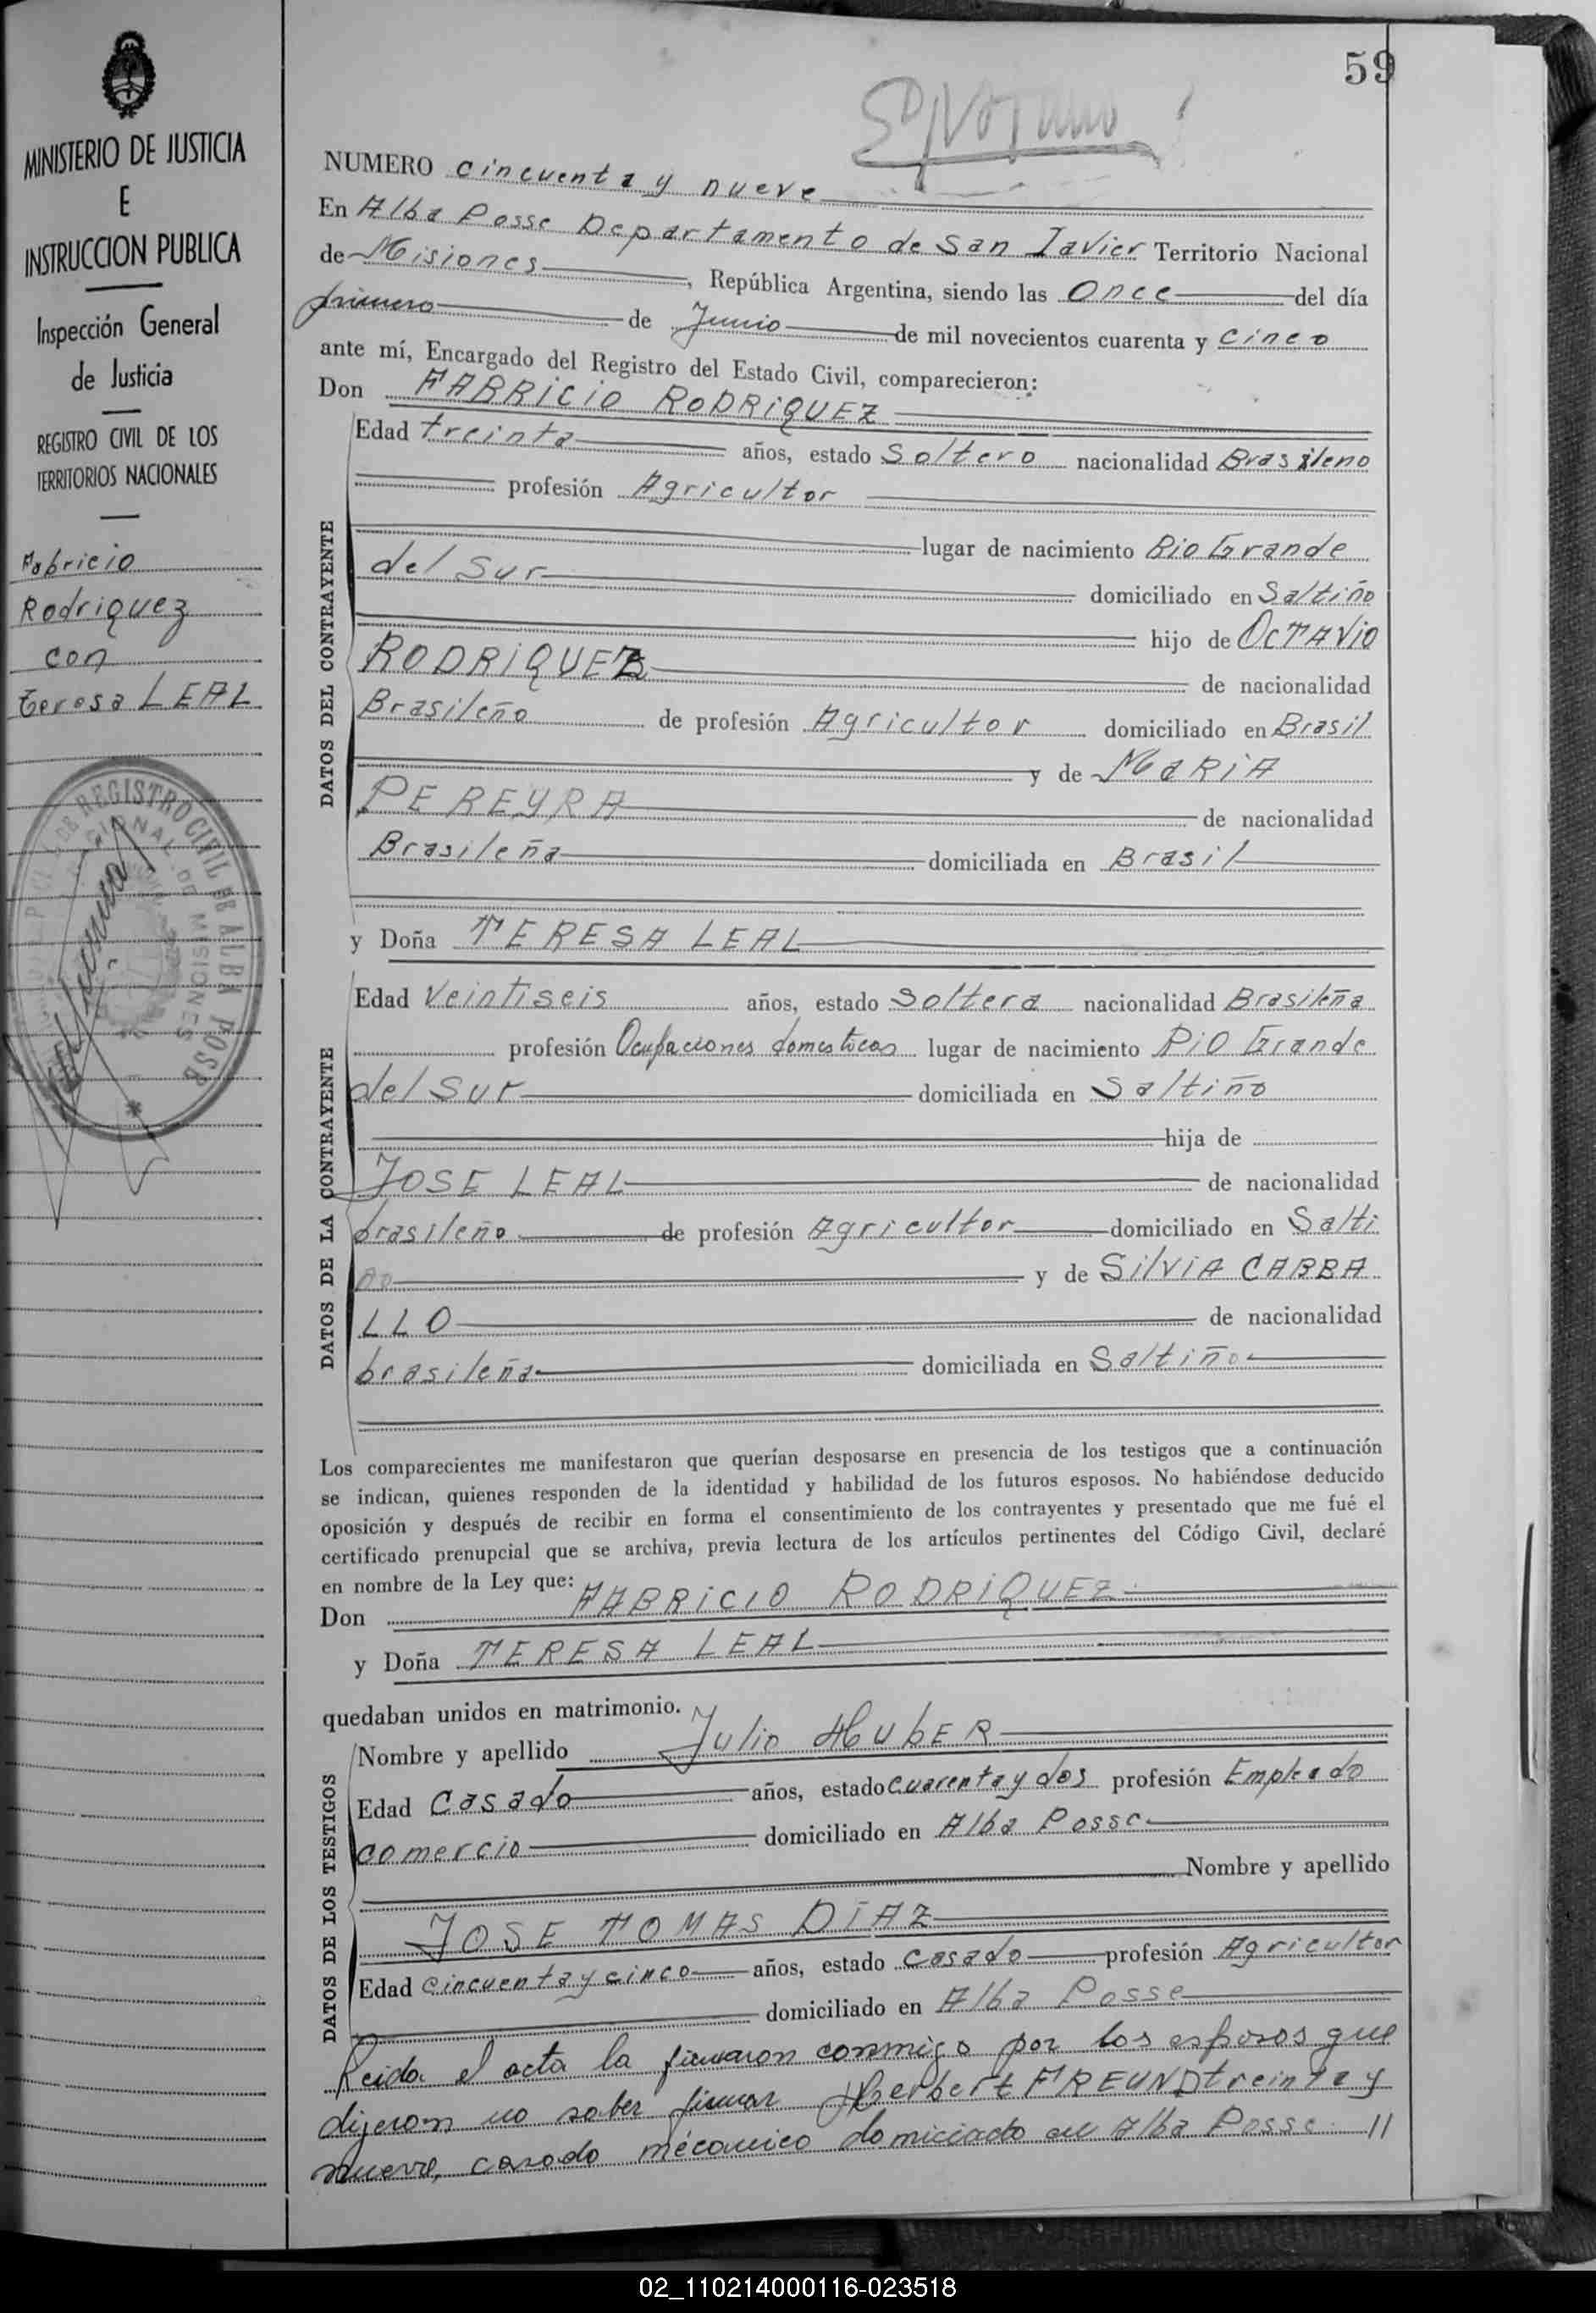 59
MINISTERIO DE JUSTICIA
E
INSTRUCCION PUBLICA
Inspección General
de Justicia
REGISTRO CIVIL DE LOS
TERRITORIOS NACIONALES
Fabricio
Rodriquez
con
Teresa LEAL
REGISTRO CIVIL DE ALBA POSE
NACIONAL DE MISIONES
NUMERO cincuenta y nueve
En Alba Posse Departamento de San Javier Territorio Nacional
de Misiones, República Argentina, siendo las Once del día
primero de Junio de mil novecientos cuarenta y cinco
ante mí, Encargado del Registro del Estado Civil, comparecieron:
Don FABRICIO RODRIQUEZ
DATOS DEL CONTRAYENTE
Edad treinta años, estado Soltero nacionalidad Brasileno
profesión Agricultor
lugar de nacimiento Rio Grande
del Sur
domiciliado en Saltiño
hijo de OCTAVIO
RODRIQUEZ de nacionalidad
Brasileño de profesión Agricultor domiciliado en Brasil
y de MARIA
PEREYRA de nacionalidad
Brasileña domiciliada en Brasil
y Doña TERESA LEAL
DATOS DE LA CONTRAYENTE
Edad Veintiseis años, estado Soltera nacionalidad Brasileña
profesión Ocupaciones domesticas lugar de nacimiento Rio Grande
del Sur domiciliada en Saltiño
hija de
JOSE LEAL de nacionalidad
brasileño de profesión Agricultor domiciliado en Salti
ño y de SilviA CARBA
LLO de nacionalidad
brasileña domiciliada en Saltiño
Los comparecientes me manifestaron que querían desposarse en presencia de los testigos que a continuación
se indican, quienes responden de la identidad y habilidad de los futuros esposos. No habiéndose deducido
oposición y después de recibir en forma el consentimiento de los contrayentes y presentado que me fué el
certificado prenupcial que se archiva, previa lectura de los artículos pertinentes del Código Civil, declaré
en nombre de la Ley que:
Don FABRICIO RODRIQUEZ
y Doña TERESA LEAL
quedaban unidos en matrimonio.
DATOS DE LOS TESTIGOS
Nombre y apellido Julio HUbER
Edad Casado años, estado cuarenta y dos profesión Empleado
comercio domiciliado en Alba Posse
Nombre y apellido
JOSE TOMAS DIAZ
Edad cincuenta y cinco años, estado casado profesión Agricultor
domiciliado en Alba Posse
Leida el acta la firmaron conmigo por los esposos que
dijeron no saber firmar Herbert FREUND treinta y
nueve, casado mécanico domiciado en Alba Posse //
02_110214000116-023518